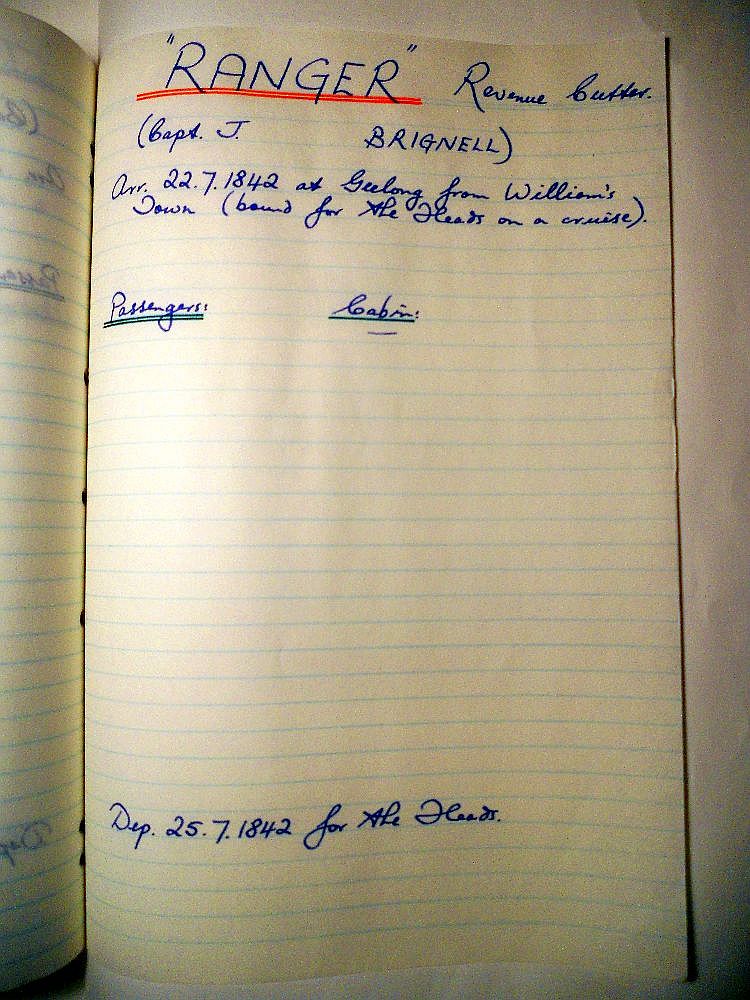 "RANGER" Revenue Cutter.
(Capt. J. BRIGNELL)
Arr. 22.7.1842 at Geelong from William's
Town (bound for the Heads on a cruise).
Passengers: Cabin:
—
Dep. 25.7.1842 for the Heads.